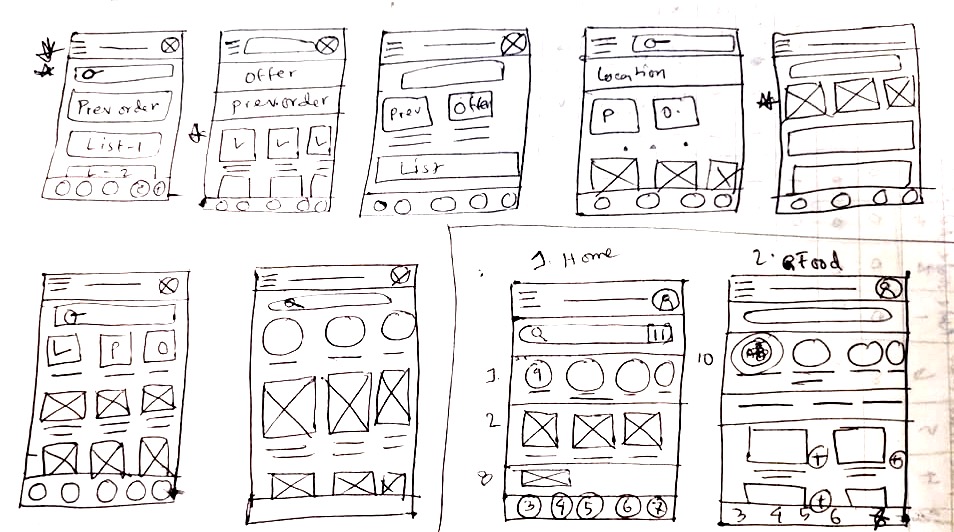 Prev order
List-1
L-2
offer
prev order
L L L
Prev
Offer
List
Location
P
O.
L P O
1. Home
1.
9
2
8
3 4 5 6 7
2. Food
10
3 4 5 6